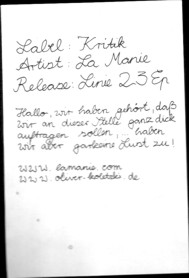 Label : Kritik
Artist : La Manie
Release: Linie 23 Ep
Hallo, wir haben gehört, daß
wir an dieser Stelle ganz dick
auftragen sollen, - haben
wir aber garkeine Lust zu!
www. lamanie. com
www. oliver-koletzki. de